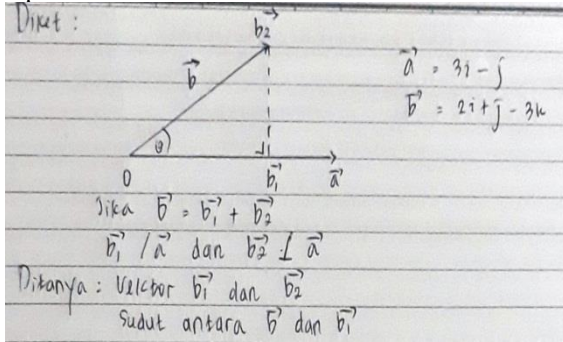 Diket :
b⃗2
b⃗
a⃗ = 3i - j
b⃗ = 2i + j - 3k
θ
0
b⃗1
a⃗
Jika b⃗ = b⃗1 + b⃗2
b⃗1 / a⃗ dan b⃗2 ⊥ a⃗
Ditanya : Vektor b⃗1 dan b⃗2
Sudut antara b⃗ dan b⃗1